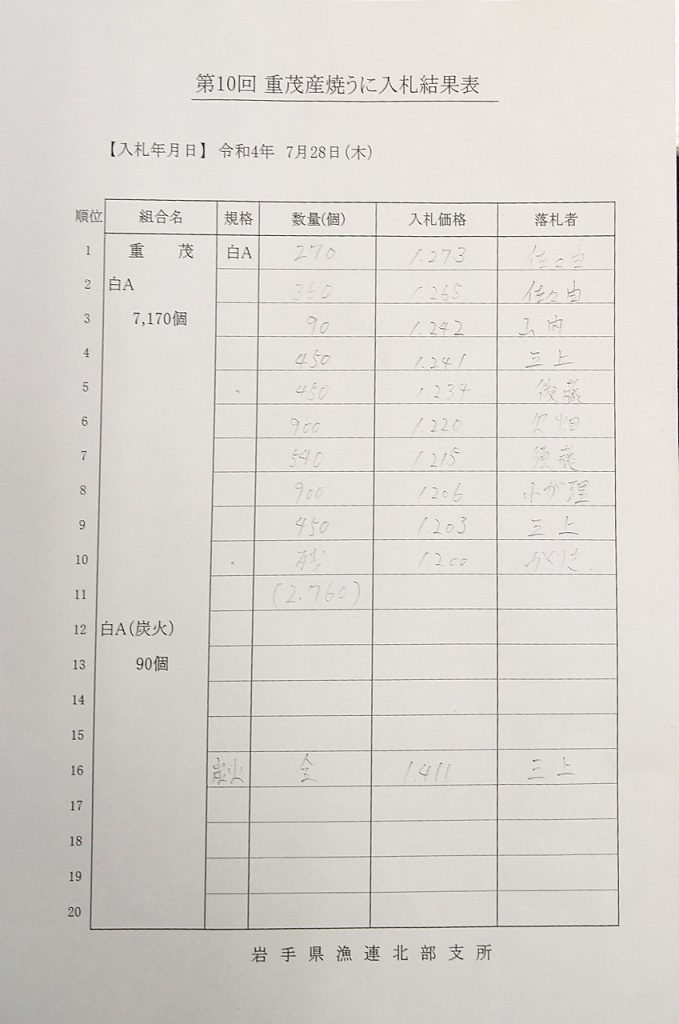 第10回 重茂産焼うに入札結果表
【入札年月日】 令和4年 7月28日(木)
順位 組合名 規格 数量(個) 入札価格 落札者
1 重茂 白A 270 1.273 佐々由
2 白A 360 1.265 佐々由
3 7,170個 90 1.242 山内
4 450 1.241 三上
5 450 1.234 後藤
6 900 1.220 欠畑
7 540 1.215 須藤
8 900 1206 小が理
9 450 1.203 三上
10 残 1.200
11 (2.760)
12 白A(炭火)
13 90個
14
15
16 炭火 全 1.411 三上
17
18
19
20
岩手県漁連北部支所